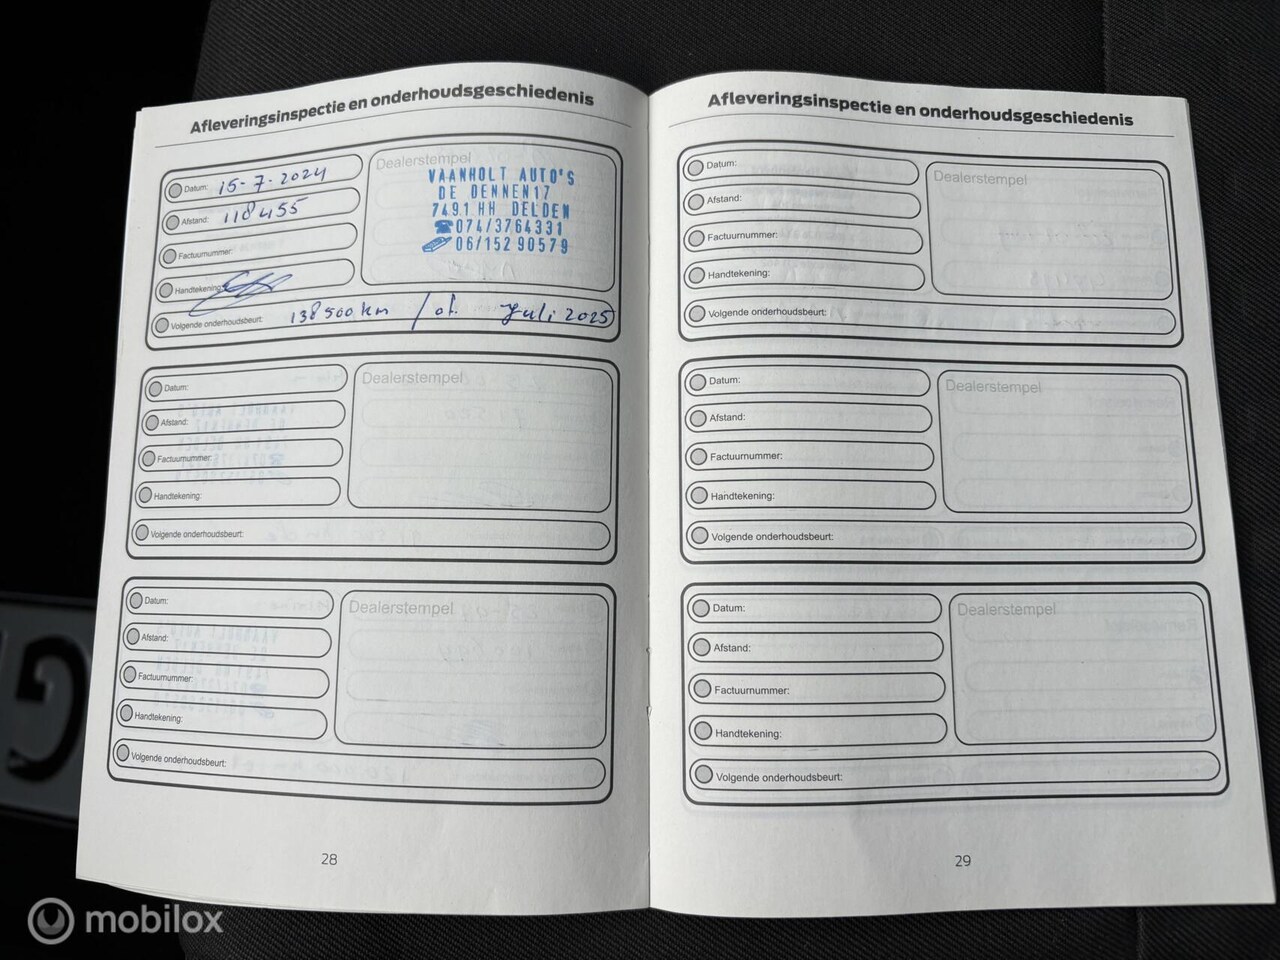 Afleveringsinspectie en onderhoudsgeschiedenis
Datum: 15-7-2024
Afstand: 118455
Factuurnummer:
Handtekening:
Dealerstempel
VAANHOLT AUTO'S
DE DENNEN 17
7491 HH DELDEN
☎074/3764331
06/152 90579
Volgende onderhoudsbeurt: 138500 km / of. Juli 2025
Datum:
Afstand:
Factuurnummer:
Handtekening:
Dealerstempel
Volgende onderhoudsbeurt:
Datum:
Afstand:
Factuurnummer:
Handtekening:
Dealerstempel
Volgende onderhoudsbeurt:
28
Afleveringsinspectie en onderhoudsgeschiedenis
Datum:
Afstand:
Factuurnummer:
Handtekening:
Dealerstempel
Volgende onderhoudsbeurt:
Datum:
Afstand:
Factuurnummer:
Handtekening:
Dealerstempel
Volgende onderhoudsbeurt:
Datum:
Afstand:
Factuurnummer:
Handtekening:
Dealerstempel
Volgende onderhoudsbeurt:
29
G
mobilox